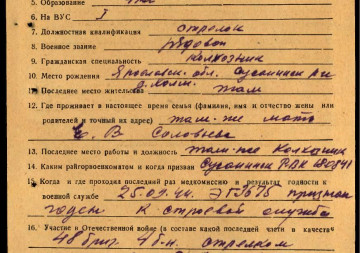 5. Образование
6. На ВУС I
7. Должностная квалификация стрелок
8. Военное звание рядовой
9. Гражданская специальность колхозник
10. Место рождения Ярославск. обл. Сусанинск р-н
11. Последнее место жительства там
12. Где проживает в настоящее время семья (фамилия, имя и отчество жены или
родителей и точный их адрес) там-же мать
Е. В Соловьева
13. Последнее место работы и должность там-же Колхозник
14. Каким райгорвоенкоматом и когда призван Сусанинск РВК
15. Когда и где проходил последний раз медкомиссию и результат годности к
военной службе признан
годен к строевой службе
16. Участие в Отечественной войне (в составе какой последней части и в качестве
48 бриг. 4 б-н. стрелком